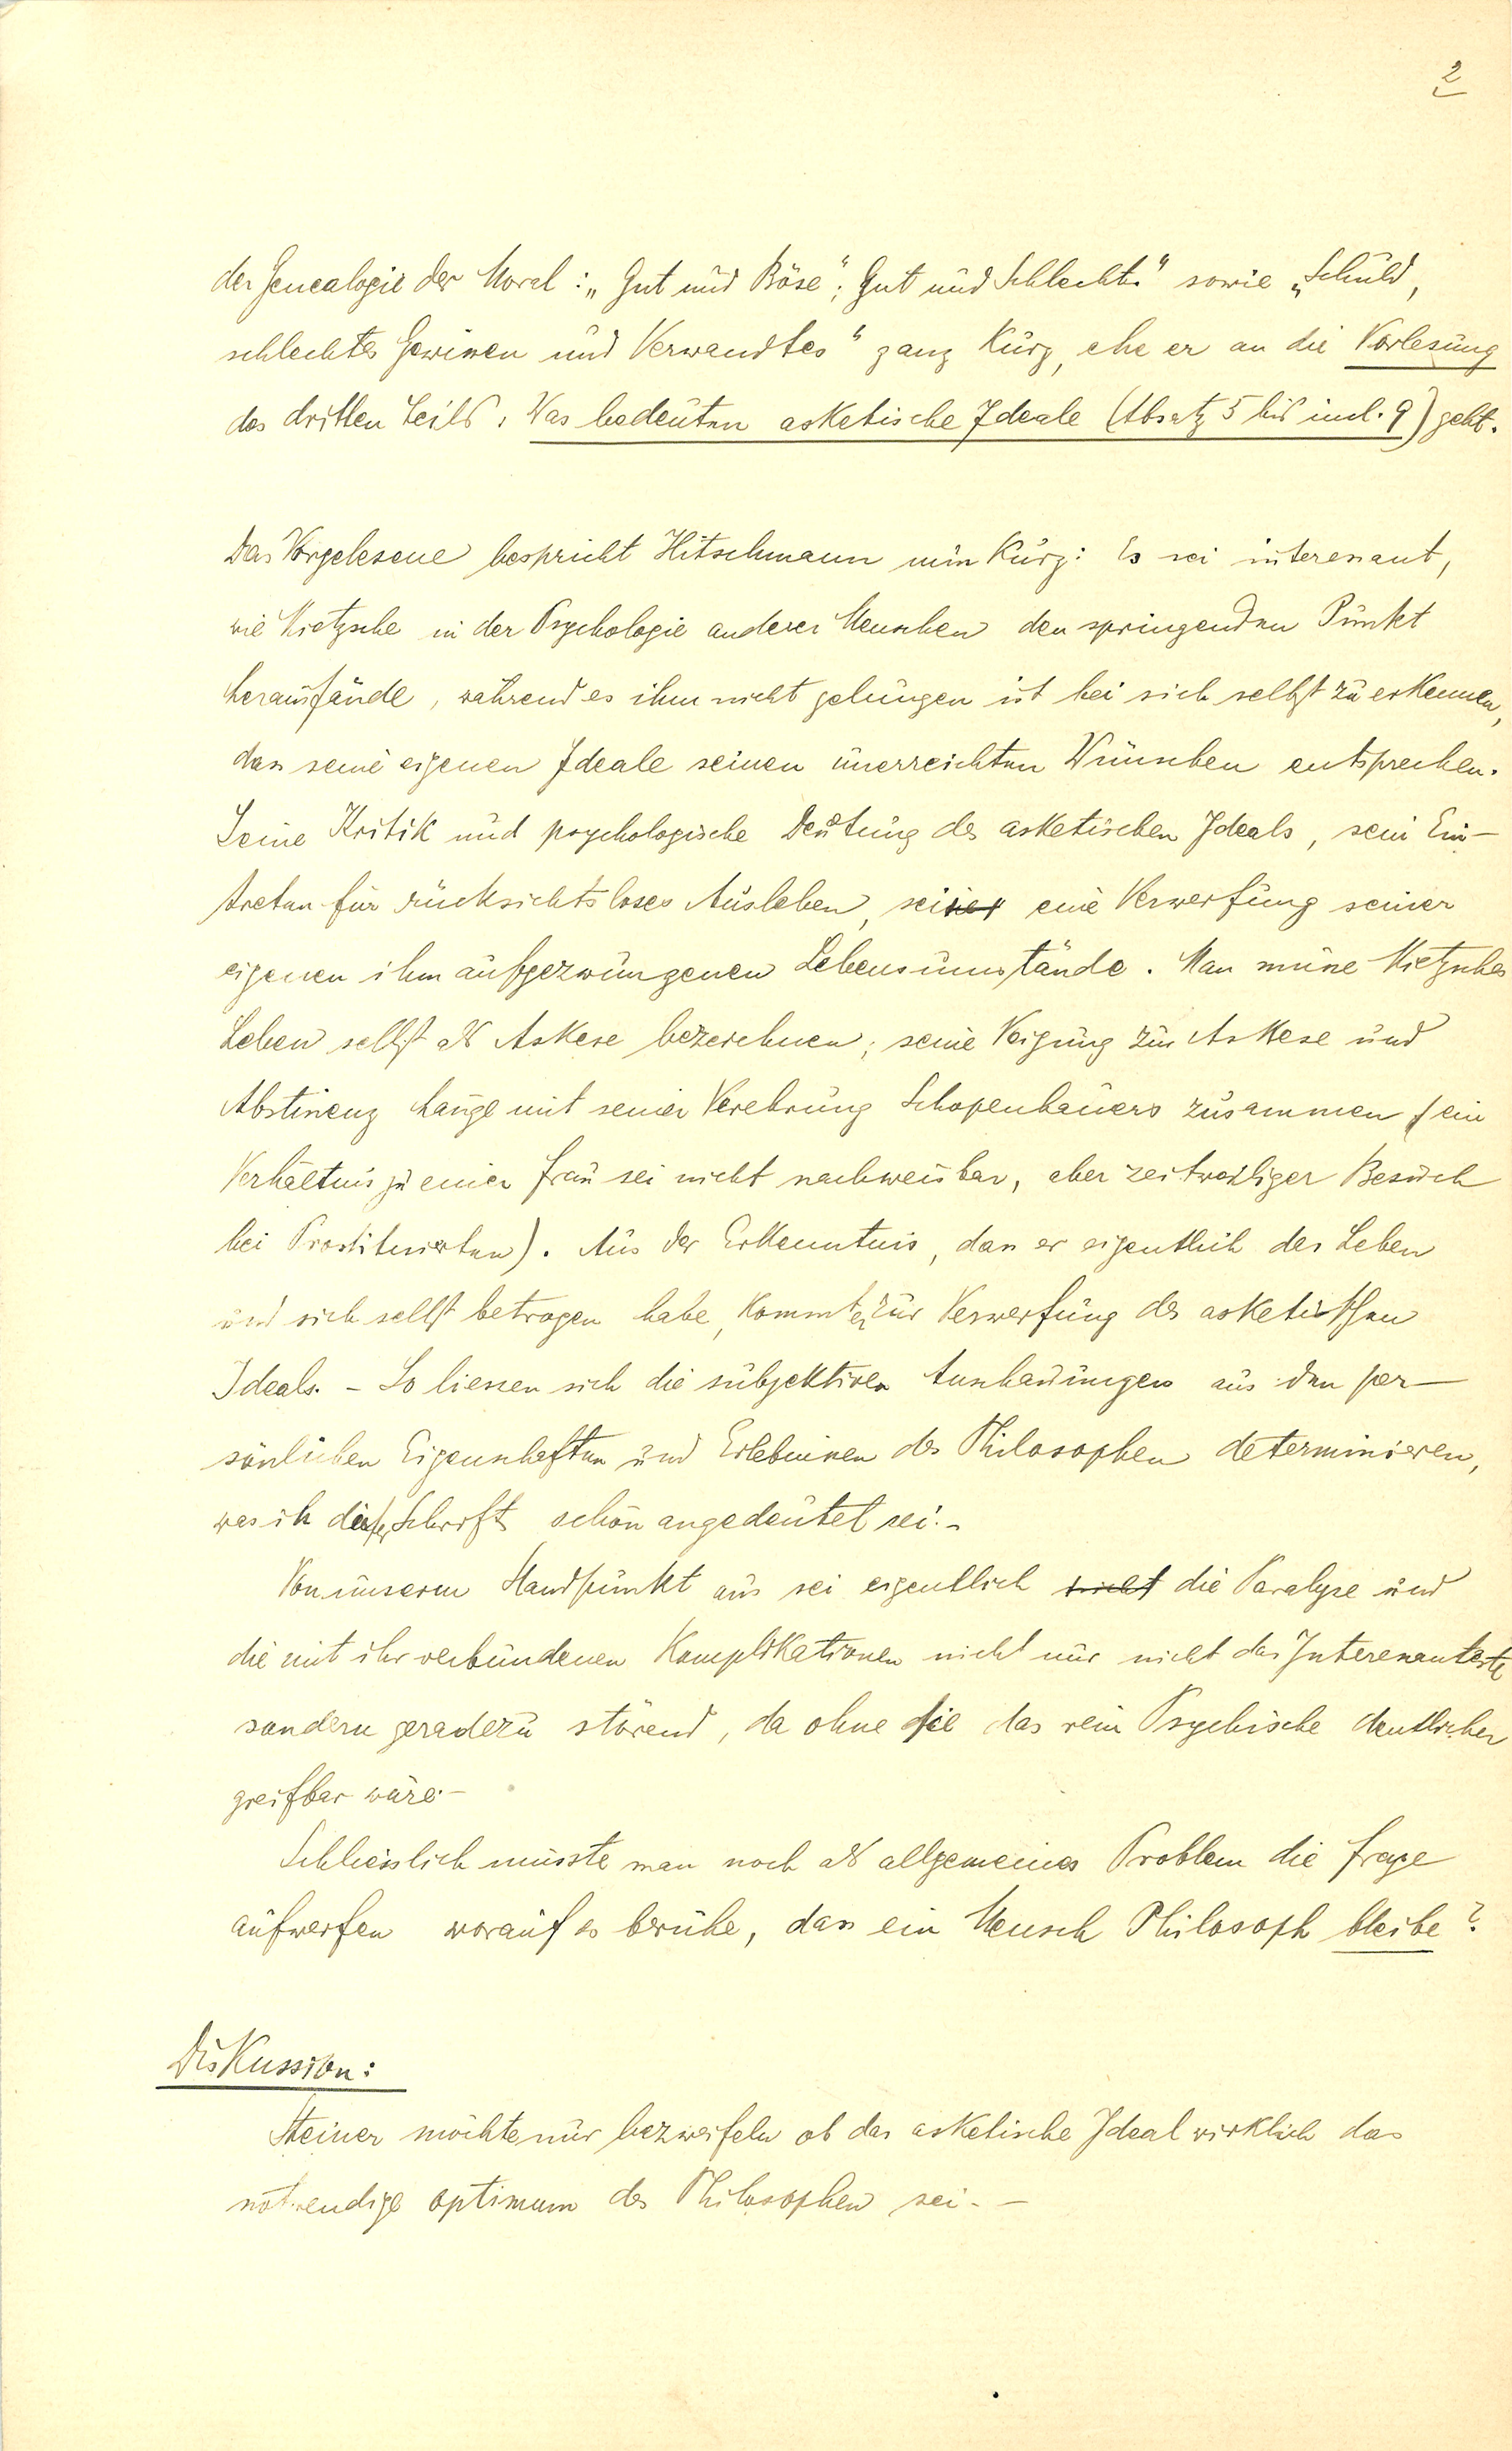 2
der Genealogie der Moral: „Gut und Böse"; Gut und Schlecht" sowie „Schuld,
schlechtes Gewissen und Verwandtes" ganz kurz, ehe er an die Vorlesung
des dritten Teils: Was bedeuten asketische Ideale (Absatz 5 bis incl. 9) geht.
Das Vorgelesene bespricht Hitschmann nun kurz: Es sei interessant,
wie Nietzsche in der Psychologie anderer Menschen den springenden Punkt
herausfände, während es ihm nicht gelungen ist bei sich selbst zu erkennen,
dass seine eigenen Ideale seinen unerreichten Wünschen entsprechen.
Seine Kritik und psychologische Deutung des asketischen Ideals, sein Ein-
treten für rücksichtsloses Ausleben, sei eine Verwerfung seiner
eigenen ihm aufgezwungenen Lebensumstände. Man müsse Nietzsches
Leben selbst als Askese bezeichnen; seine Neigung zur Askese und
Abstinenz hänge mit seiner Verehrung Schopenhauers zusammen (ein
Verhältnis zu einer Frau sei nicht nachweisbar, aber zeitweiliger Besuch
bei Prostituierten). Aus der Erkenntnis, dass er eigentlich das Leben
und sich selbst betrogen habe, kommt er zur Verwerfung des asketischen
Ideals. - So liessen sich die subjektiven Anschauungen aus den per-
sönlichen Eigenschaften und Erlebnissen des Philosophen determinieren,
was in dieser Schrift schön angedeutet sei. -
Von unserem Standpunkt aus sei eigentlich nicht die Paralyse und
die mit ihr verbundenen Komplikationen nicht nur nicht das Interessanteste
sondern geradezu störend, da ohne sie das rein Psychische deutlicher
greifbar wäre. -
Schliesslich müsste man noch als allgemeines Problem die Frage
aufwerfen worauf es beruhe, dass ein Mensch Philosoph bleibe?
Diskussion:
Steiner möchte nur bezweifeln ob das asketische Ideal wirklich das
notwendige optimum des Philosophen sei. -